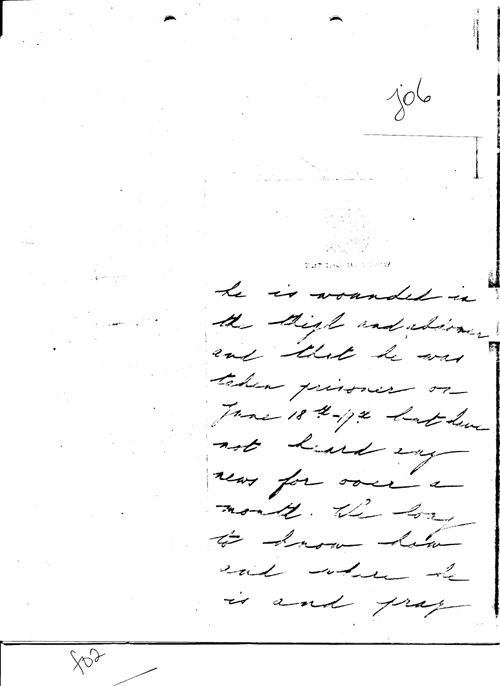 j06
he is wounded in
the thigh and abdomen
and that he was
taken prisoner on
June 18th-19th but have
not heard any
news for over a
month. We long
to know how
and where he
is and pray
f02